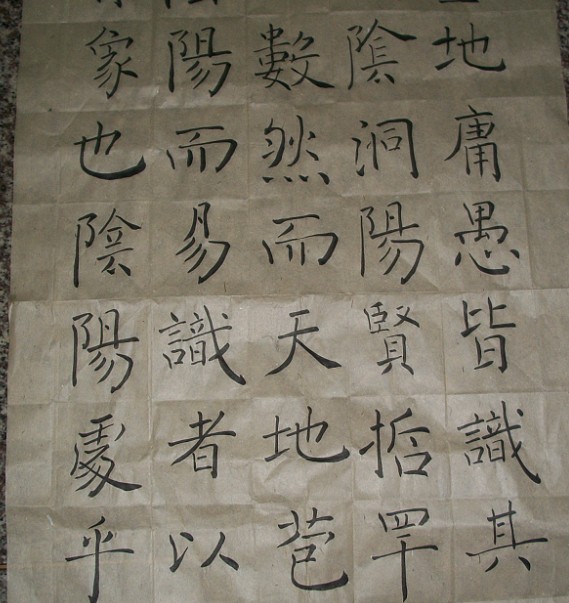 地庸愚皆識其
陰洞陽賢哲罕
數然而天地苞
陽而易識者以
象也陰陽處乎